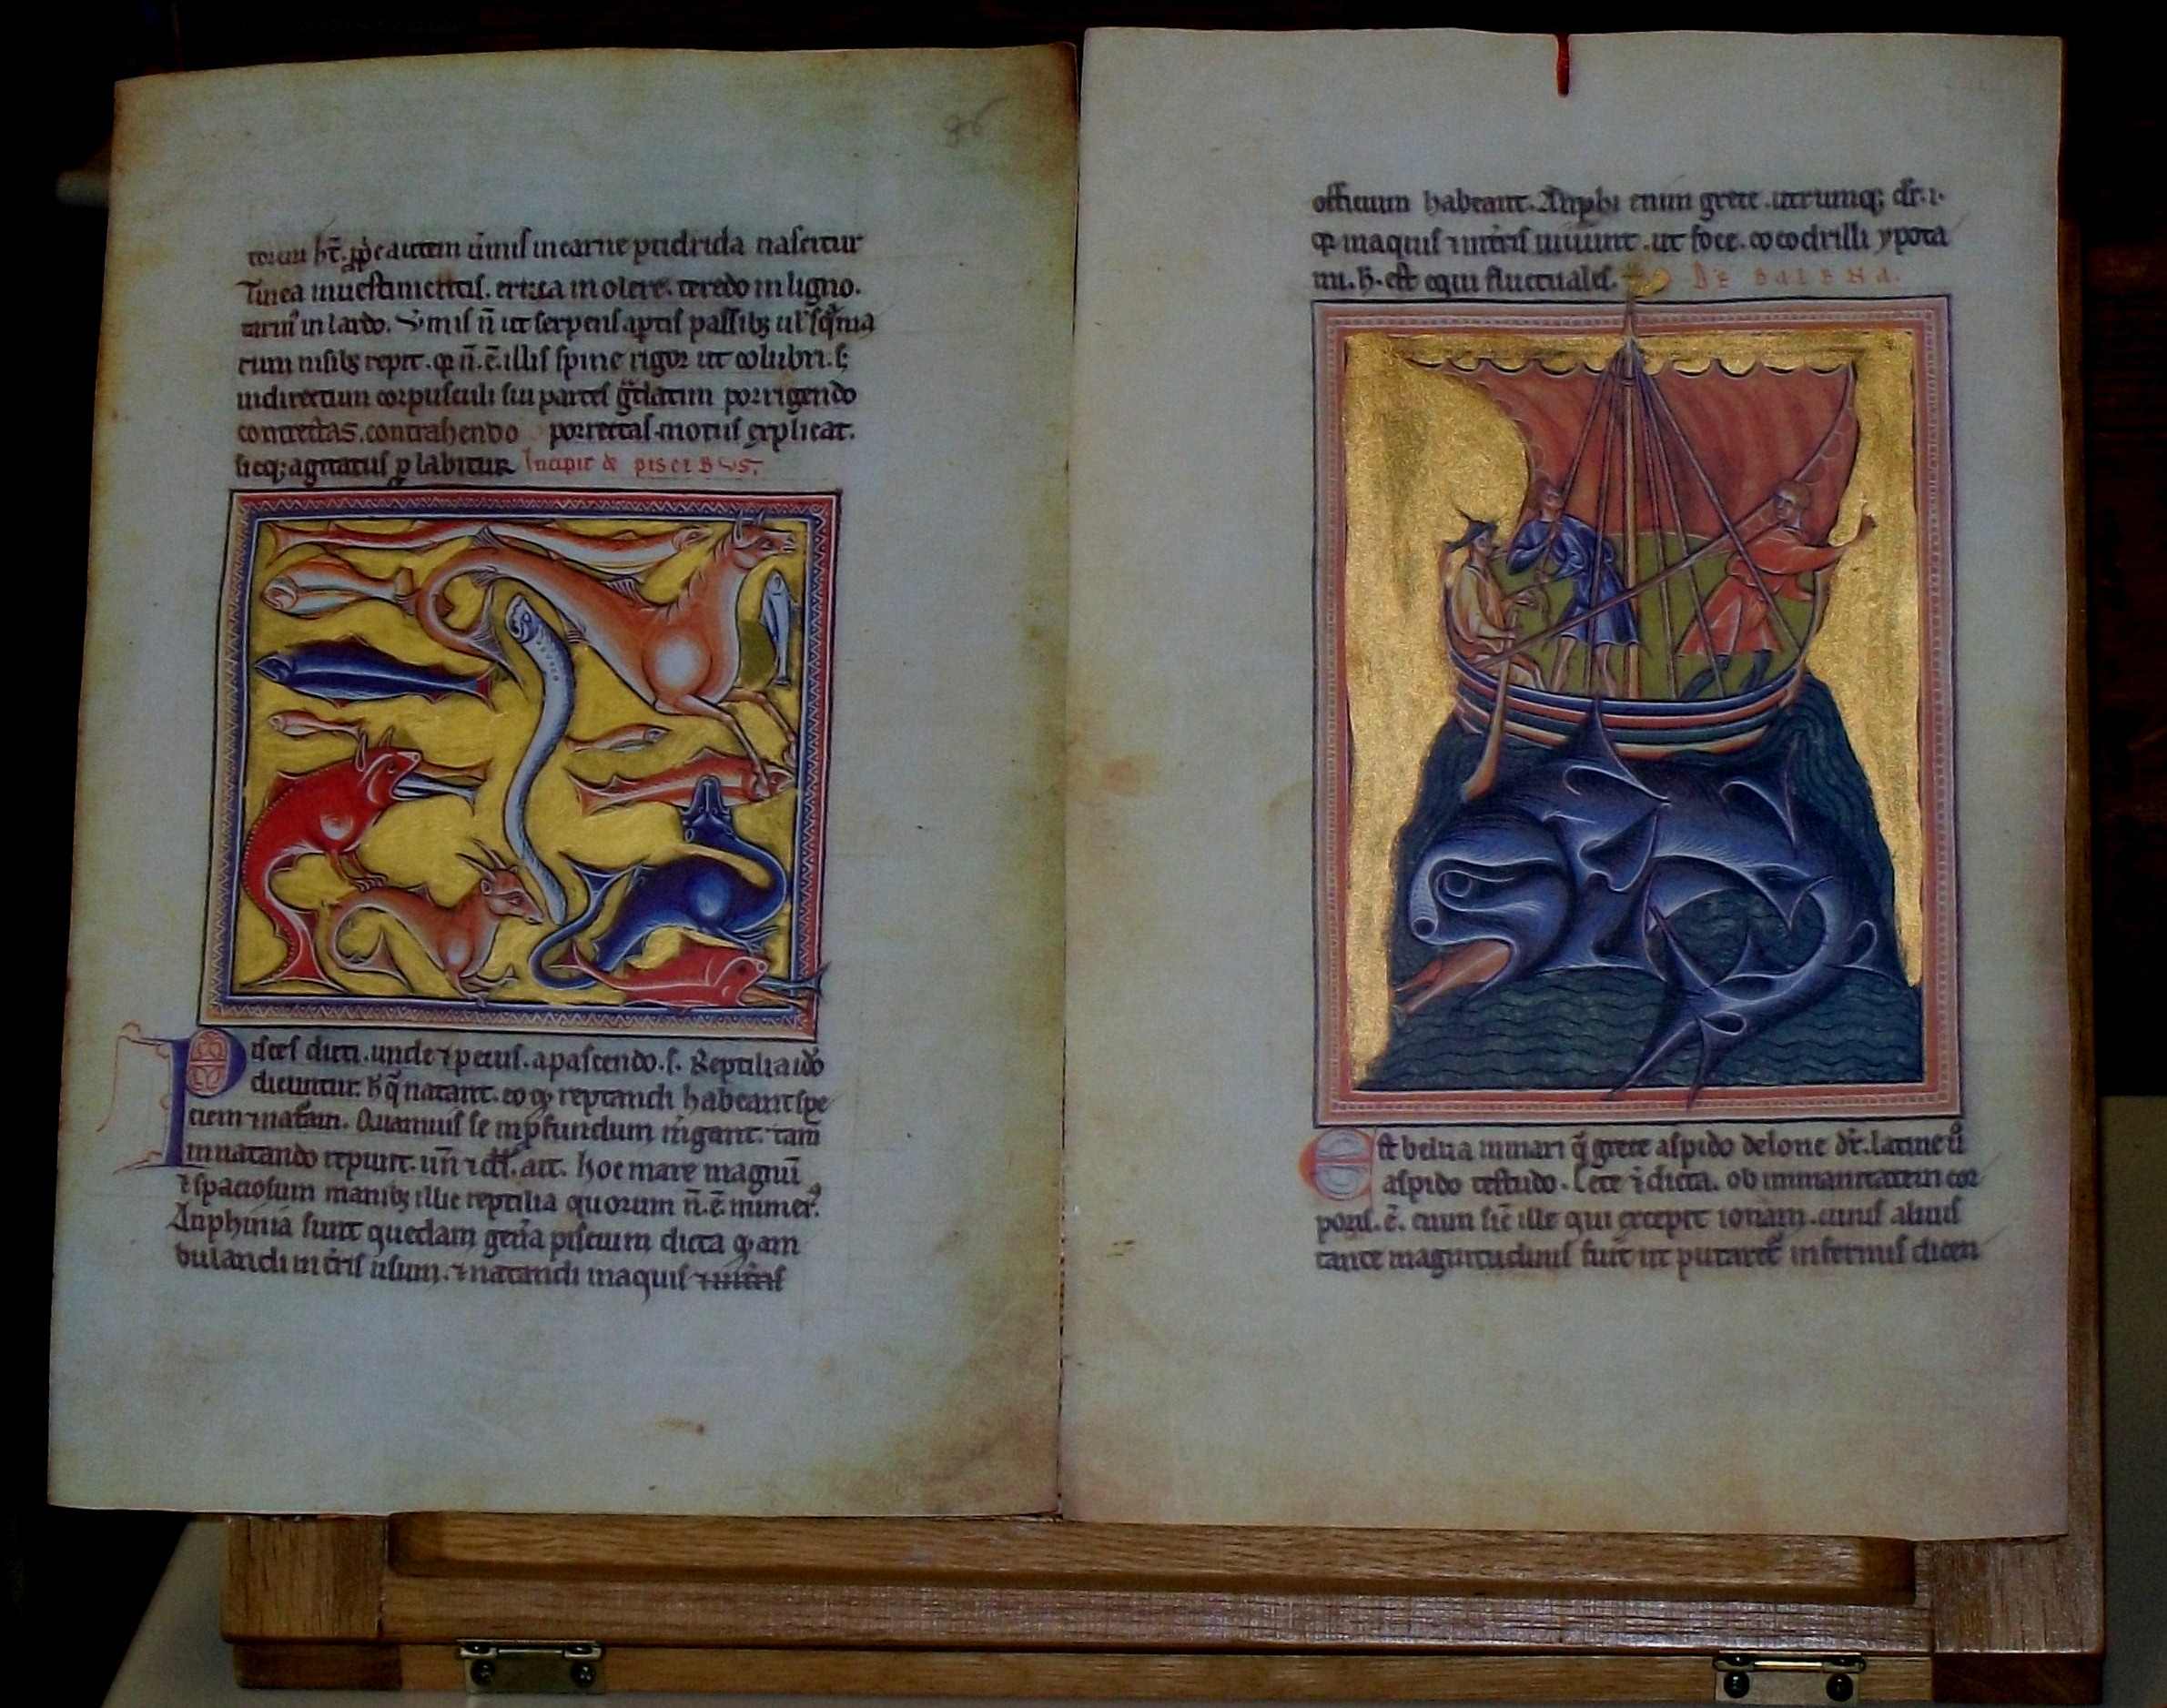 86
corum hr̄. ꝓp̄e autem ūmis in carne putrida nascitur
Tinea in uestimentis. eruca in olere. teredo in ligno.
tarm᷒ in lardo. Vmis n̄ ut serpens aptis passibꝫ ul̓ sq̄ma
rum nisibꝫ repit. qꝫ n̄. ē. illis spine rigor ut colubri. s;
in directum corpusculi sui partes g̃datim porrigendo
contractas. contrahendo porrectas motus explicat.
sicq; agitatus ꝓlabitur Incipit de piscibus.
Pisces dicti. unde ⁊ pecus. a pascendo. s. Reptilia ido̓
dicuntur. h̓ q̄ natant. eo qꝫ reptandi habeant spe
ciem ⁊ nat̃am. Quamuis se in ꝓfundum m̓gant. tam̄
in natando repunt. un̄ ⁊ dd̓. ait. hoc mare magnū
⁊ spaciosum manibꝫ illic reptilia quorum n̄. ē. numer᷒.
Anphinia sunt quedam gen̓a piscium dicta qꝫ am
bulandi in tr̓is usum. ⁊ natandi in aquis
officium habeant. Anphi enim grece. utrumq; dr̄. i.
qꝫ in aquis ⁊ in tr̓is uiuunt. ut foce. cocodrilli ypota
mi. h. est equi fluctuales. De balena.
Est belua in mari q̄ grece aspido delone dr̄. latine u̓
aspido testudo. Cete ⁊ dicta. ob immanitatem cor
poris. ē. enim sic̄ ille qui excepit ionam. cuius aluus
tante magnitudinis fuit ut putaret᷑ infernus dicen